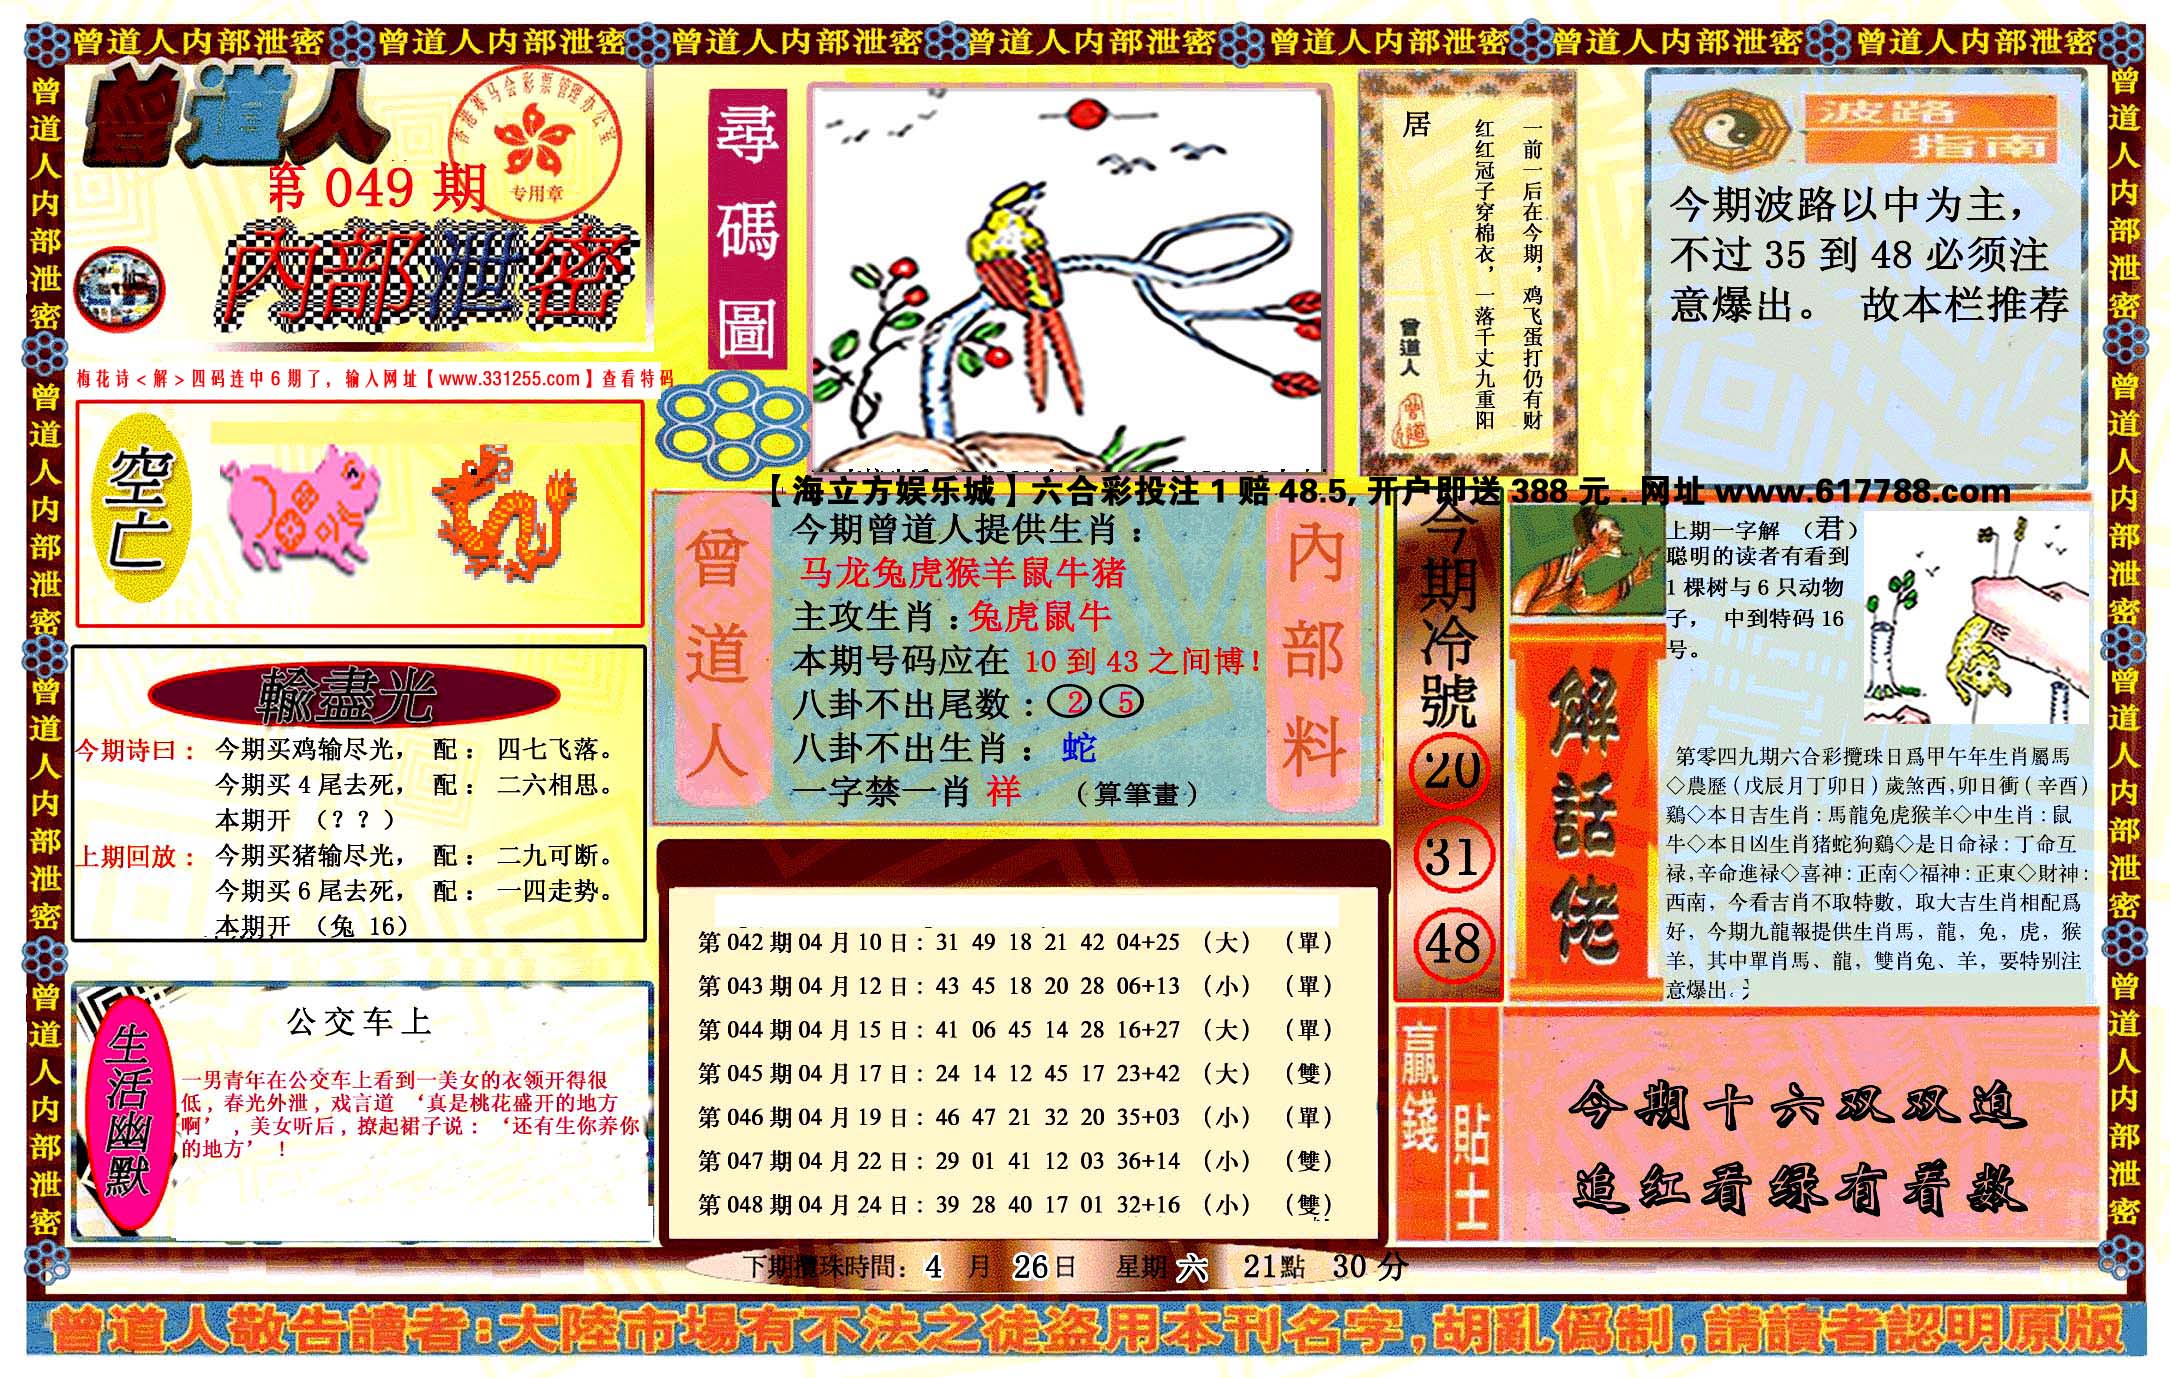 曾道人内部泄密 曾道人内部泄密 曾道人内部泄密 曾道人内部泄密 曾道人内部泄密 曾道人内部泄密 曾道人内部泄密
曾道人内部泄密
曾道人内部泄密
曾道人内部泄密
曾道人内部泄密
曾道人
香港赛马会彩票管理办公室
专用章
第 049 期
內部泄密
梅花诗<解>四码连中6期了，输入网址【www.331255.com】查看特码
空亡
輸盡光
今期诗曰： 今期买鸡输尽光， 配： 四七飞落。
今期买4尾去死， 配： 二六相思。
本期开 （？？）
上期回放： 今期买猪输尽光， 配： 二九可断。
今期买6尾去死， 配： 一四走势。
本期开 （兔 16）
生活幽默
公交车上
一男青年在公交车上看到一美女的衣领开得很
低，春光外泄，戏言道 ‘真是桃花盛开的地方
啊’ ，美女听后，撩起裙子说：‘还有生你养你
的地方’ ！
尋碼圖
【海立方娱乐城】六合彩投注1赔48.5,开户即送388元.网址www.617788.com
曾道人
今期曾道人提供生肖：
马龙兔虎猴羊鼠牛猪
主攻生肖：兔虎鼠牛
本期号码应在 10 到 43 之间博！
八卦不出尾数：2 5
八卦不出生肖： 蛇
一字禁一肖 祥 （算筆畫）
內部料
第042期04月10日：31 49 18 21 42 04+25 （大） （單）
第043期04月12日：43 45 18 20 28 06+13 （小） （單）
第044期04月15日：41 06 45 14 28 16+27 （大） （單）
第045期04月17日：24 14 12 45 17 23+42 （大） （雙）
第046期04月19日：46 47 21 32 20 35+03 （小） （單）
第047期04月22日：29 01 41 12 03 36+14 （小） （雙）
第048期04月24日：39 28 40 17 01 32+16 （小） （雙）
下期攪珠時間：4 月 26日 星期六 21點 30 分
一前一后在今期，鸡飞蛋打仍有财
红红冠子穿棉衣，一落千丈九重阳
居
曾道人
曾道
波路
指南
今期波路以中为主，
不过 35 到 48 必须注
意爆出。 故本栏推荐
今期冷號
20
31
48
解話佬
上期一字解 （君）
聪明的读者有看到
1 棵树与 6 只动物
子， 中到特码 16
号。
第零四九期六合彩攪珠日爲甲午年生肖屬馬
◇農歷（戊辰月丁卯日）歲煞西,卯日衝（辛酉）
鷄◇本日吉生肖：馬龍兔虎猴羊◇中生肖：鼠
牛◇本日凶生肖猪蛇狗鷄◇是日命禄：丁命互
禄,辛命進禄◇喜神：正南◇福神：正東◇財神：
西南，今看吉肖不取特數，取大吉生肖相配爲
好，今期九龍報提供生肖馬，龍，兔，虎，猴
羊，其中單肖馬、龍，雙肖兔、羊，要特别注
意爆出。
贏錢
貼士
今期十六双双追
追红看绿有着数
曾道人敬告讀者:大陸市場有不法之徒盗用本刊名字,胡亂僞制,請讀者認明原版
曾道人内部泄密
曾道人内部泄密
曾道人内部泄密
曾道人内部泄密